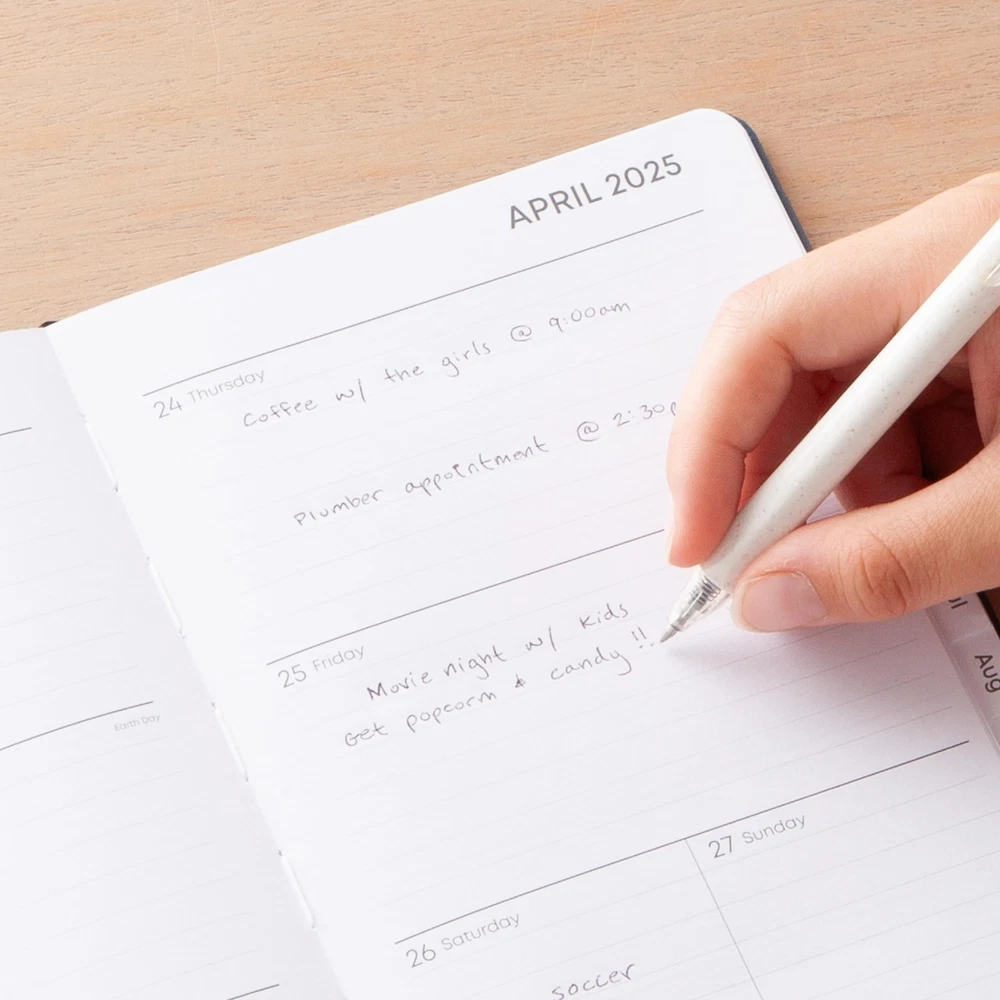 APRIL 2025
24 Thursday
Coffee w/ the girls @ 9:00am
Plumber appointment @ 2:30p
25 Friday
Movie night w/ kids
Get popcorm & candy !!
Earth Day
26 Saturday
soccer
27 Sunday
Aug